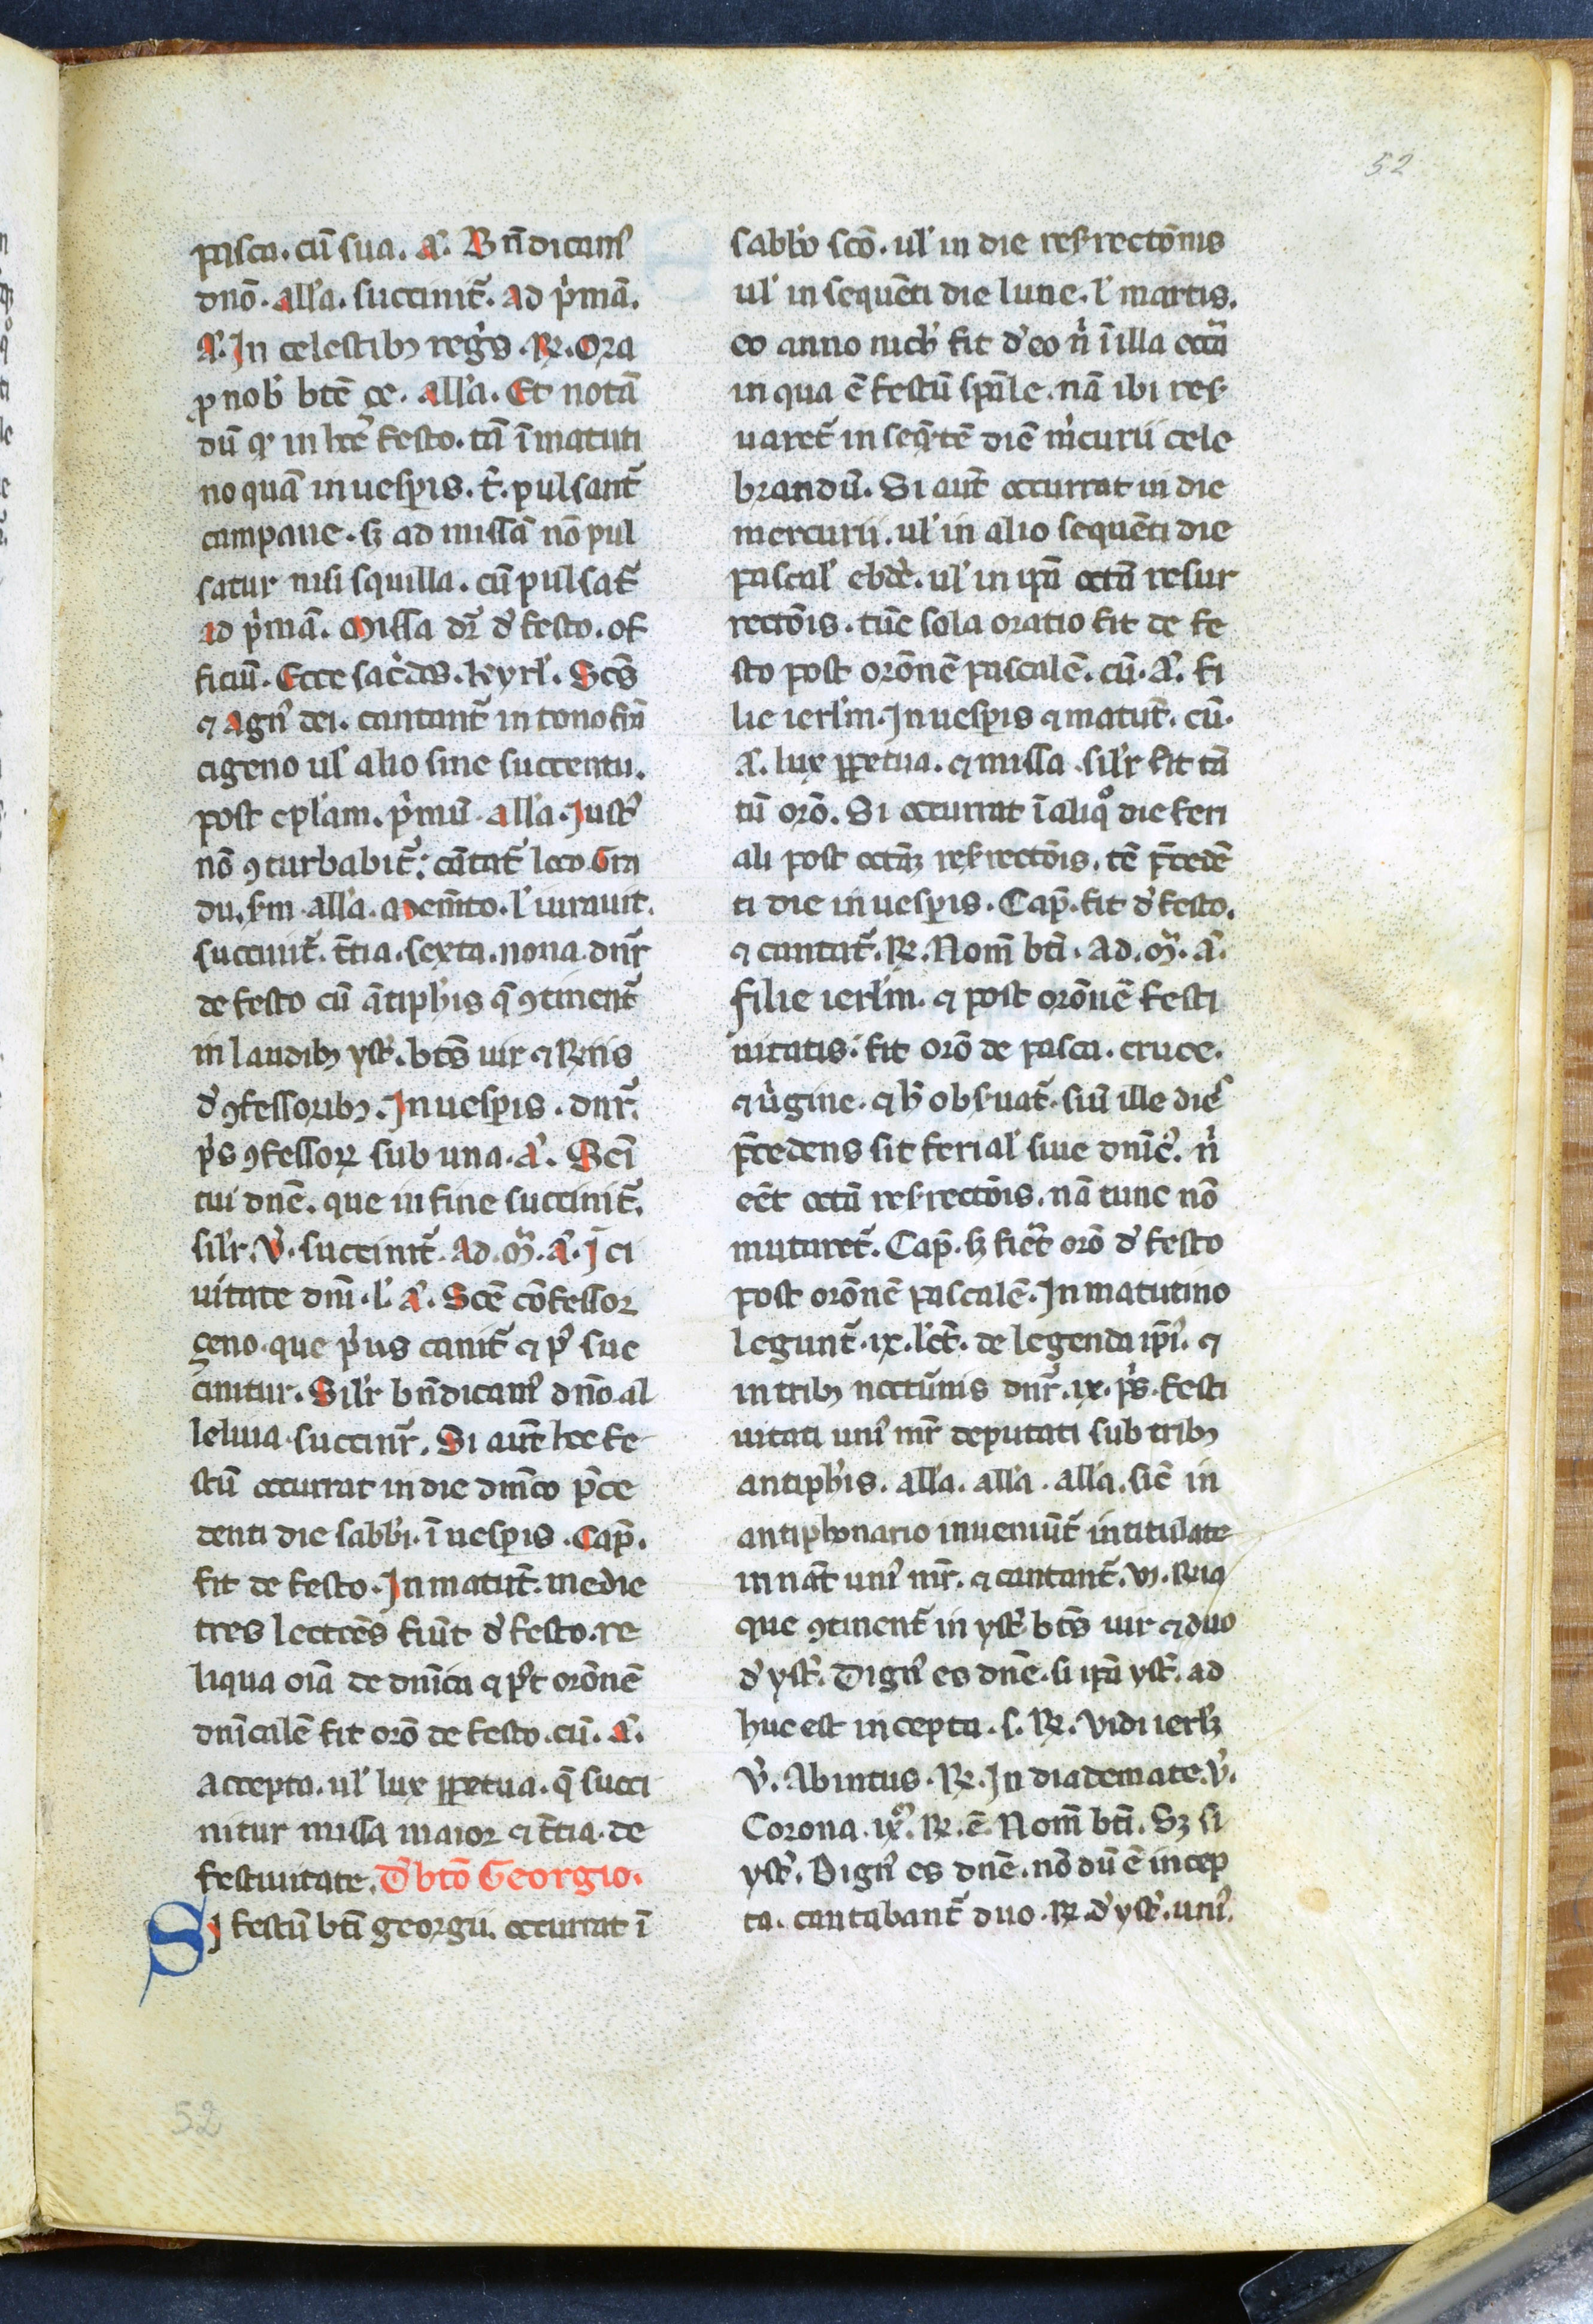 52
pasca. cū sua. a᷒. Bn̄dicam᷒
dn̄o. all̓a. succinit̃. ad p̓mā.
a᷒. In celestibꝫ regꝰs. ℞. Ora
ꝓ nob̓ btē ge. all̓a. Et notā
dū qꝰ in hoc̄ festo. tā ī matuti
no quā in uesꝑis. t̓. pulsant̃
campane. sꝫ ad missā nō pul
satur nisi squilla. cū pulsat̃
ad p̓mā. Missa dr̃ d̓ festo. of
ficiū. Ecce sac̓dos. kyrl̓. Sc̄s
⁊ Agn᷒ dei. cantant̃ in tono frā
cigeno ul̓ alio sine succentu.
post epl̓am. p̓mū all̓a. Iust᷒
nō ꝯturbabit̃. cātat̃ loco Gra
du. scd̄m all̓a. Mem̄to. l̓ iurauit.
succinit̃. t̄tia. sexta. nona dn̄r
de festo cū ātiph̓is q̄ ꝯtinent̃
in laudibꝫ yst᷒. btꝰs uir ⁊ ℞niis
d̓ ꝯfessoribꝫ. In uesꝑis. dn̄r̃.
p̓s ꝯfessoꝝ sub una. a᷒. Sc̄i
tui dn̄e. que in fine succinit̃.
sil̓r. v̓. succinit̃. Ad. m̃. a᷒. I ci
uitate dn̄i. l̓. a᷒. Sc̄e cōfessor
geno. que p̓us canit̃ ⁊ p᷒ suc
cinitur. Sil̓r bn̄dicam᷒ dn̄o. al
leluia. succinr̃. Si aut̄ hoc fe
stū occurrat in die dn̄ico p̄ce
denti die sabb̓i. ī uesꝑis. Cap̄.
fit de festo. In matut̃. medie
tres lectōēs fiūt d̓ festo. re
liqua oīa de dn̄ica ⁊ p᷒t orōnē
dn̄icalē fit orō de festo. cū. a᷒.
accepta. ul̓ lux ꝑpetua. q̄ succi
nitur missa maior ⁊ t̄tia. de
festiuitate. D̓ btō Georgio.
SI festū bti georgii. occurrat ī
sabb̓o scō. ul̓ in die resrectōnis
ul̓ in sequēti die lune. l̓ martis.
eo anno nich̓ fit d̓ eo n̓ ī illa eccā
in qua ē festū spāle. nā ibi res᷒
uaret̃ in seq̄tē diē m̓curii cele
brandū. Si aut̄ occurrat in die
mercurii. ul̓ in alio sequēti die
pascal̓ ebdē. ul̓ in ip̄a octā resur
rectōis. tūc sola oratio fit de fe
sto post orōnē pascalē. cū. a᷒. fi
lie ierl̓m. In uesꝑis ⁊ matut̃. cū.
a᷒. lux ꝑpetua. ⁊ missa. sil̓r fit tā
tū orō. Si occurrat ī aliqͦ die feri
ali post octāꝫ resrectōis. tē p̄cedē
ti die in uesꝑis. Cap̄. fit d̓ festo.
⁊ cantat̃. ℞. Nom̄ bti. ad. m̃. a᷒.
filie ierl̓m. ⁊ post orōnē festi
uitatis. fit orō de pasca. cruce.
⁊ ũgine. ⁊ h̓ obs̓uat̃. siū ille dieſ
p̄cedens sit ferial̓ siue dn̄ic᷒. n̓
eēt octā resrectōis. nā tunc nō
mutaret̃. Cap̄. sꝫ fieret orō d̓ festo
post orōnē pascalē. In matutino
legunt̃. ix. lc̄t̃. de legenda ip̄i᷒. ⁊
in tribꝫ nocturnis dn̄r̃. ix. p̓s. festi
uitati uni᷒ mr̃ deputati sub tribꝫ
antiph̓is. all̓a. all̓a. all̓a. sic̄ in
antiphonario inueniūt̃ intitulate
in nat̃ uni᷒ mr̃. ⁊ cantant̃. vj. ℞ia
que ꝯtinent̃ in yst᷒. btꝰs uir ⁊ duo
d̓ yst᷒. Dign᷒ es dn̄e. si ip̄a yst᷒. ad
huc est incepta. s. ℞. vidi ierlꝫ
v̓. Ab intus. ℞. In diademate. v̓.
Corona. ixͫ. ℞. ē. Nom̄ bti. Sꝫ si
yst᷒. Dign᷒ es dn̄e. nō dū ē incep
ta. cantabant̃ duo. ℞. d̓ yst᷒. uni᷒.
52